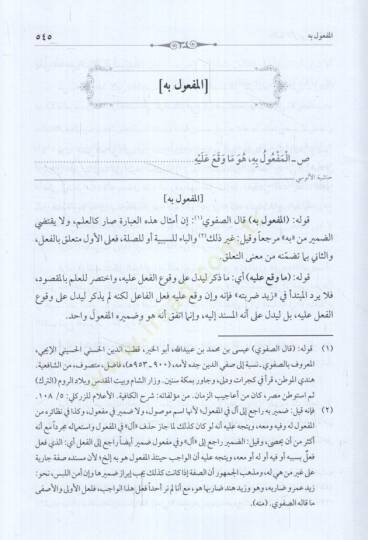 المفعول به
٥٤٥
[المفعول به]
ص - الْمَفْعُولُ بِهِ، هُوَ مَا وَقَعَ عَلَيْهِ
حاشية الآلوسي
[المفعول به]
قوله: (المفعول به) قال الصفوي(١): إن أمثال هذه العبارة صار كالعلم، ولا يقتضي
الضمير من «به» مرجعاً وقيل: غير ذلك(٢) والباء للسببية أو للصلة، فعلى الأول متعلق بالفعل،
والثاني بما تضمّنه من معنى التعلق.
قوله: (ما وقع عليه) أي: ما ذكر ليدل على وقوع الفعل عليه، واختصر للعلم بالمقصود،
فلا يرد المبتدأ في «زيد ضربته» فإنه وإن وقع عليه فعل الفاعل لكنه لم يذكر ليدل على وقوع
الفعل عليه، بل ليدل على أنه المسند إليه، وإنما اتفق أنه هو وضميره المفعول واحد.
(١) قوله: (قال الصفوي) عيسى بن محمد بن عبيدالله، أبو الخير، قطب الدين الحسني الحسيني الإيجي،
المعروف بالصفوي. نسبة إلى صفي الدين جده لأمه، (٩٠٠-٩٥٣هـ)، فاضل، متصوف، من الشافعية.
هندي الموطن، قرأ في كجرات ودلى، وجاور بمكة سنين. وزار الشام وبيت المقدس وبلاد الروم (الترك)
ثم استوطن مصر، كان من أعاجيب الزمان. من مؤلفاته: شرح الكافية. الأعلام للزركلي: ٥/ ١٠٨.
(٢) فإنه قيل: ضمير به راجع إلى أل في المفعول؛ لأنها اسم موصول، ولا ضمير في مفعول، وكذا في نظائره من
المفعول له وفيه ومعه، ويتجه عليه أنه لو كان كذلك ما جاز حذف «أل» في المفعول واستعماله مجرداً مع أنه
أكثر من أن يحصى، وقيل: الضمير راجع إلى «أل» وفي مفعول ضمير أيضاً راجع إلى الفعل أي: الذي فعل
فعلٌ بسببه أو فيه أو له أو معه، ويتجه عليه أن الواجب حينئذ المفعول هو به إلخ؛ لأن مسنده صفة جارية
على غير من هي له، ومذهب الجمهور أن الصفة إذا كانت كذلك يجب إبراز ضميرها وإن أمن اللبس، نحو:
زيد عمرو ضاربه هو، وزيد هند ضاربها هو، مع أنا لم نر أحداً فعل هذا الواجب، فلعل الأولى والأصفى
ما قاله الصفوي. (منه).